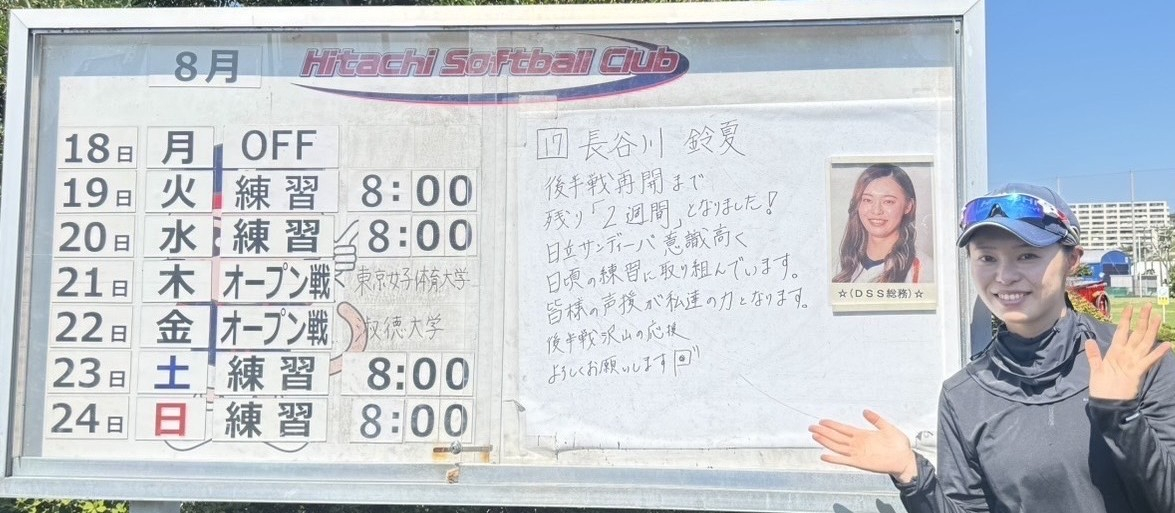 8月
Hitachi Softball Club
18日 月 OFF
19日 火 練習 8:00
20日 水 練習 8:00
21日 木 オープン戦 東京女子体育大学
22日 金 オープン戦 淑徳大学
23日 土 練習 8:00
24日 日 練習 8:00
17 長谷川 鈴夏
後半戦再開まで
残り「2週間」となりました!
日立サンディーバ 意識高く
日頃の練習に取り組んでいます。
皆様の声援が私達の力となります。
後半戦沢山の応援
よろしくお願いします
☆(DSS総務)☆